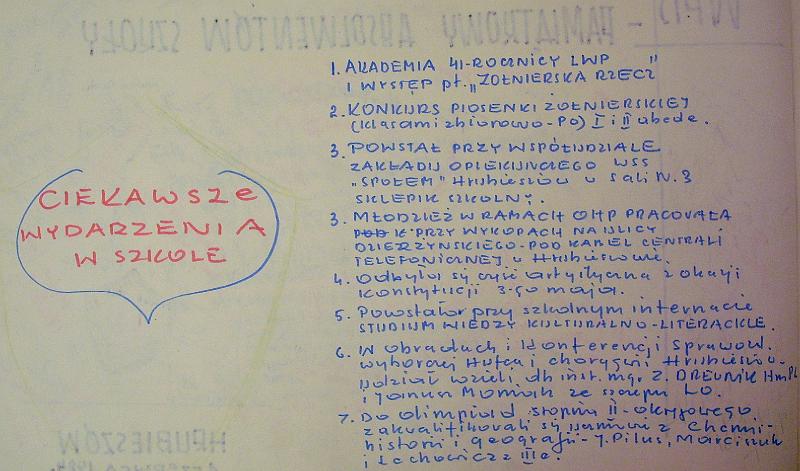 CIEKAWSZE
WYDARZENIA
W SZKOLE
1. AKADEMIA 41-ROCNICY LWP
I WYSTĘP pt. „ŻOŁNIERSKA RZECZ”
2. KONKURS PIOSENKI ŻOŁNIERSKIEJ
(klasami zbiorowo - Po) I i II ubede.
3. POWSTAŁ PRZY WSPÓŁUDZIALE
ZAKŁADU OPIEKUŃCZEGO WSS
„SPOŁEM” Hrubieszów w sali N. 3
SKLEPIK SZKOLNY.
3. MŁODZIEŻ W RAMACH OHP PRACOWAŁA
PRZY WYKOPACH NA ULICY
DZIERŻYŃSKIEGO - POD KABEL CENTRALI
TELEFONICZNEJ w Hrubieszowie.
4. Odbyła się część artystyczna z okazji
Konstytucji 3-go maja.
5. Powstało przy szkolnym internacie
STUDIUM WIEDZY KULTURALNO-LITERACKIE.
6. W obradach i Konferencji Sprawozd.
wyborczej Hufca i chorągwi Hrubieszów -
udział wzieli, dh inst. mg. Z. DREWNIK HmPL
i Janusz Momiak ze szczepu LO.
7. Do olimpiad stopnia II - okręgowego
zakwalifikowali się uczniowie z Chemii -
historii i geografii - J. Pilus, Marciszuk
i Lechowicz z IIIe.
WPIS - PAMIĄTKOWY ABSOLWENTÓW SZKOŁY
HRUBIESZÓW